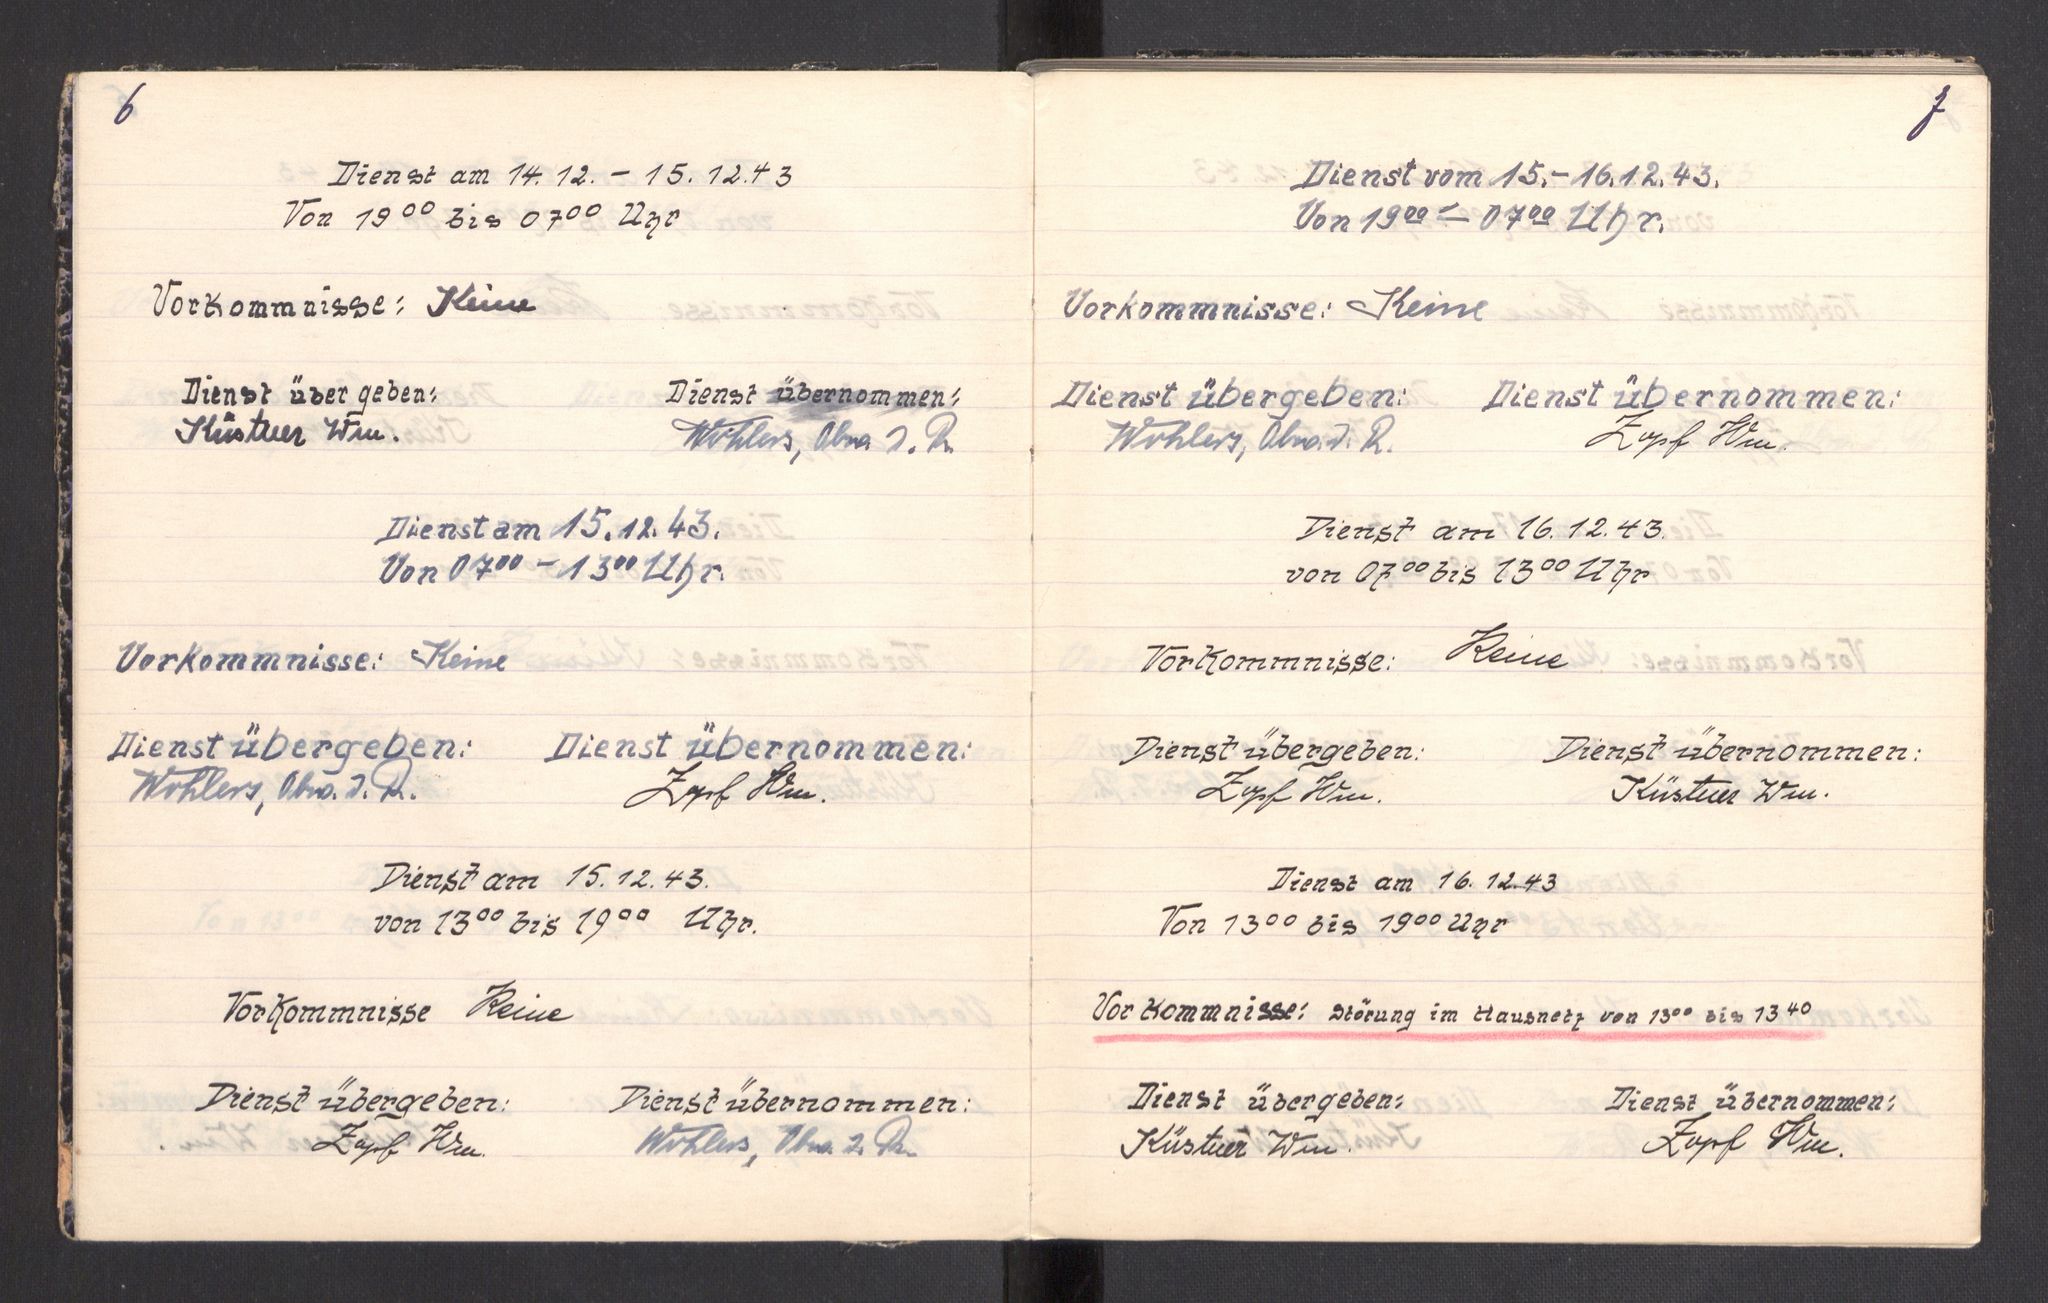 6
Dienst am 14.12. – 15.12.43
Von 19⁰⁰ bis 07⁰⁰ Uhr
Vorkommnisse: Keine
Dienst übergeben: Dienst übernommen:
Küstner Wm. Wohlers, Obw. d. R.
Dienst am 15.12.43.
Von 07⁰⁰ – 13⁰⁰ Uhr.
Vorkommnisse: Keine
Dienst übergeben: Dienst übernommen:
Wohlers, Obw. d. R. Zopf Wm.
Dienst am 15.12.43.
von 13⁰⁰ bis 19⁰⁰ Uhr.
Vorkommnisse Keine
Dienst übergeben: Dienst übernommen:
Zopf Wm. Wohlers, Obw. d. R.
7
Dienst vom 15.–16.12.43.
Von 19⁰⁰ – 07⁰⁰ Uhr.
Vorkommnisse: Keine
Dienst übergeben: Dienst übernommen:
Wohlers, Obw. d. R. Zopf Wm.
Dienst am 16.12.43.
von 07⁰⁰ bis 13⁰⁰ Uhr
Vorkommnisse: Keine
Dienst übergeben: Dienst übernommen:
Zopf Wm. Küstner Wm.
Dienst am 16.12.43
Von 13⁰⁰ bis 19⁰⁰ Uhr
Vorkommnisse: Störung im Hausnetz von 13⁰⁰ bis 13⁴⁰
Dienst übergeben: Dienst übernommen:
Küstner Wm. Zopf Wm.